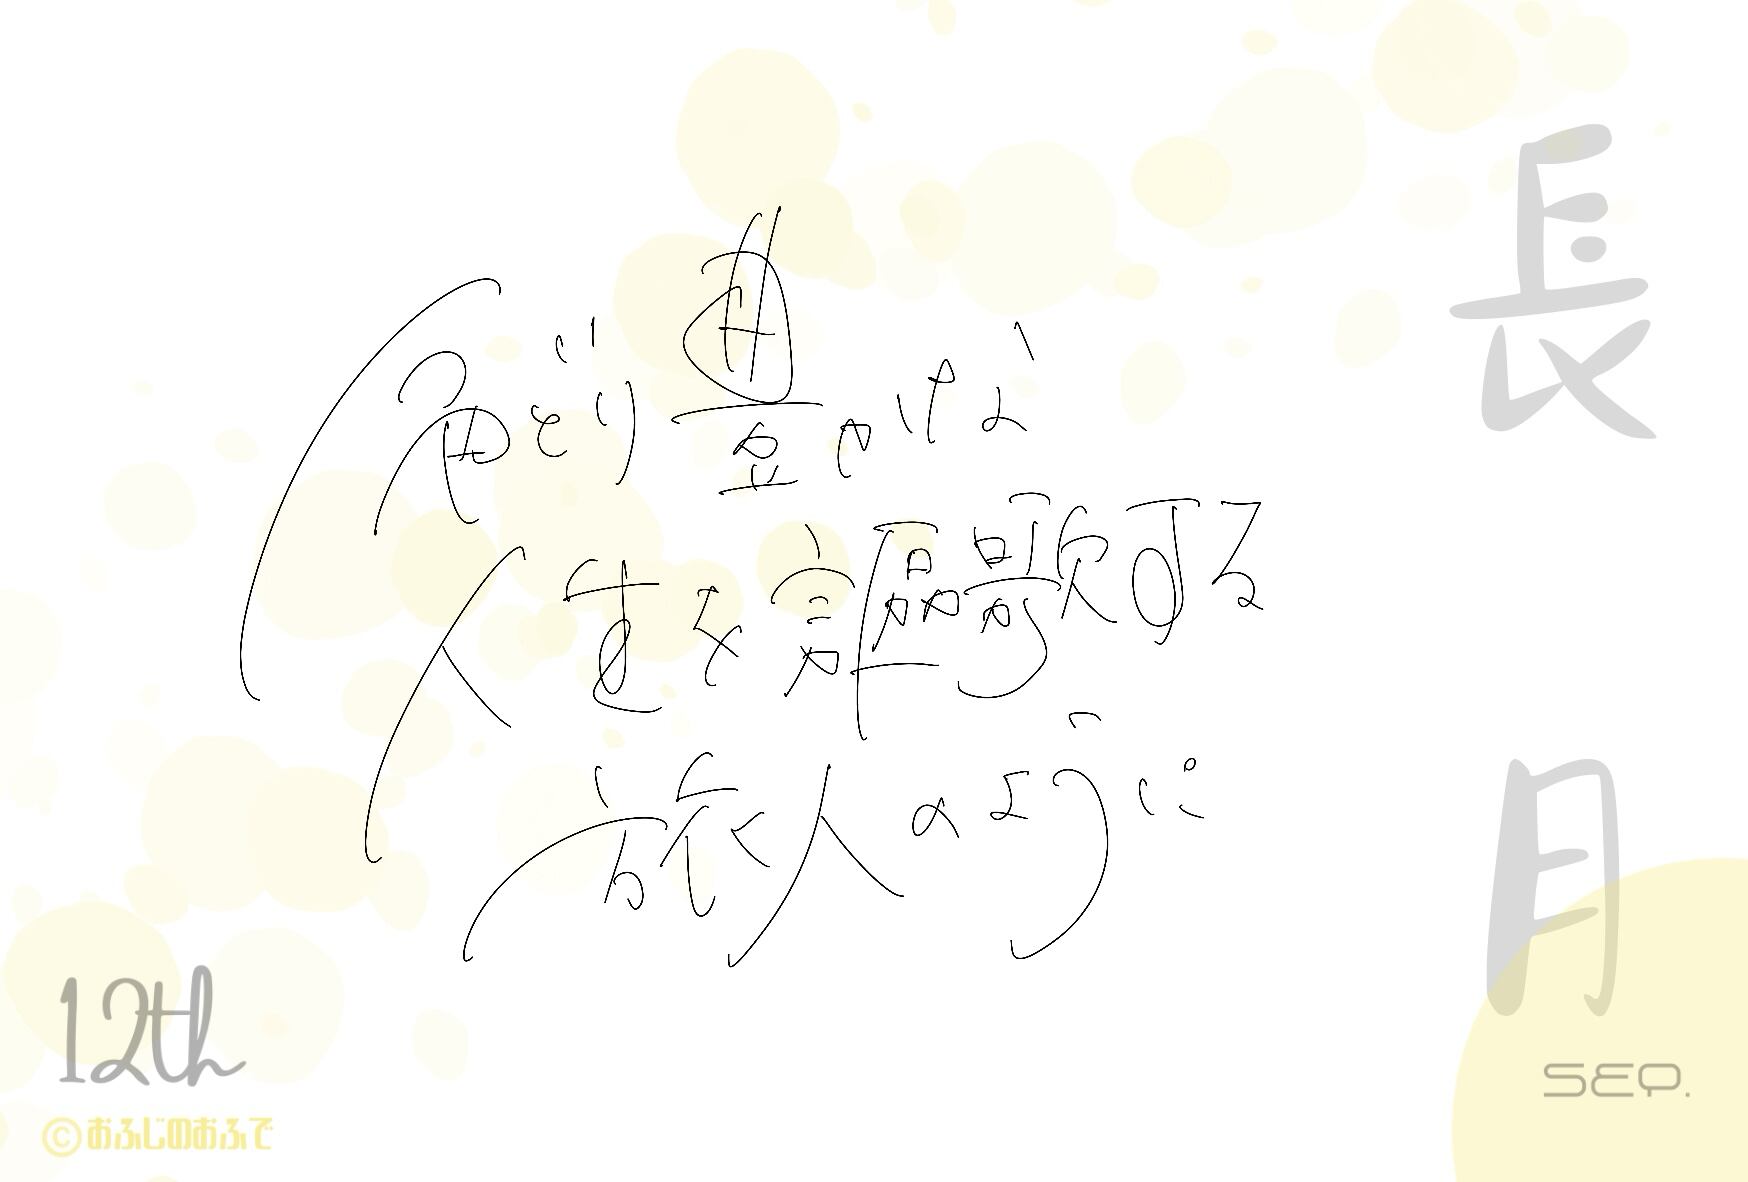 色どり豊かな
人生を謳歌する
旅人のように
長月
SEP.
12th
©おふじのおふで